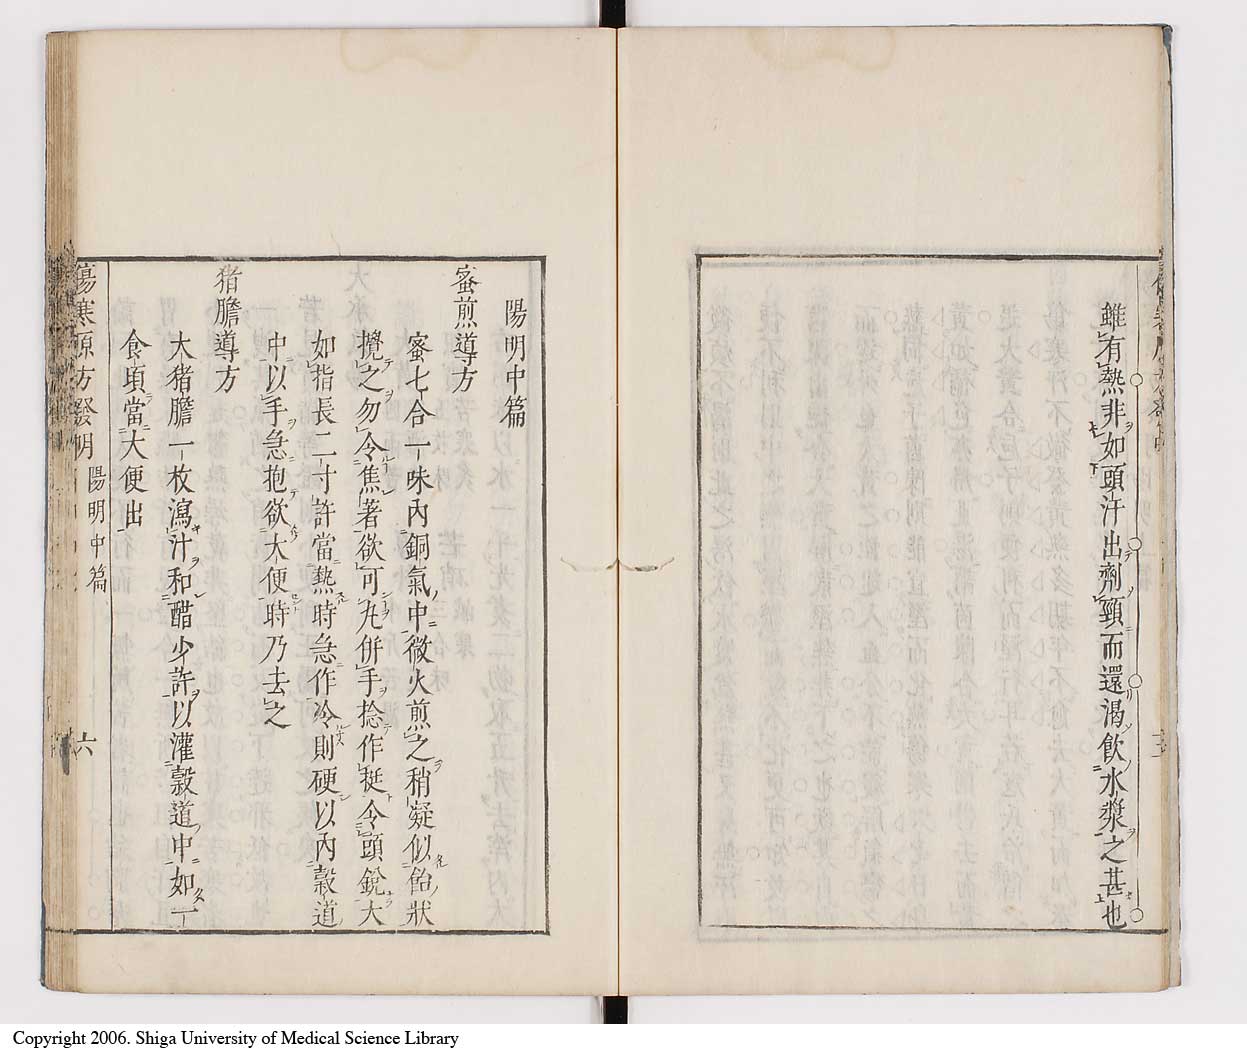 雖有熱非如頭汗出劑頸而還渴飲水漿之甚也
陽明中篇
蜜煎導方
蜜七合一味內銅氣中微火煎之稍凝似飴狀
攪之勿令焦著欲可丸併手捻作挺令頭銳大
如指長二寸許當熱時急作冷則硬以內穀道
中以手急抱欲大便時乃去之
猪膽導方
大猪膽一枚瀉汁和醋少許以灌穀道中如一
食頃當大便出
傷寒原方發明
陽明中篇
六
Copyright 2006. Shiga University of Medical Science Library